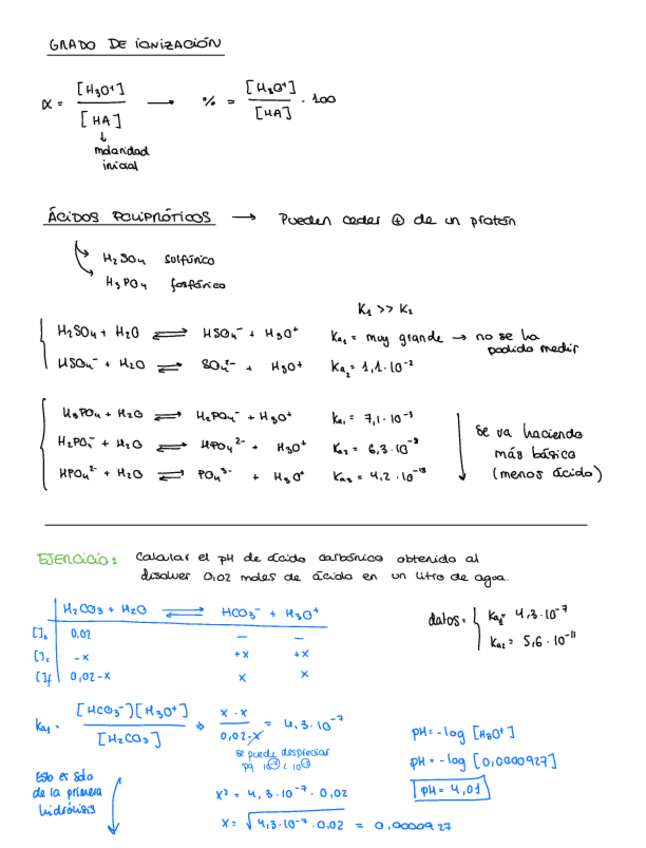 GRADO DE IONIZACIÓN
α = [H₃O⁺] / [HA] → % = [H₃O⁺] / [HA] · 100
↓
molaridad
inicial
ÁCIDOS POLIPRÓTICOS → Pueden ceder ⊕ de un protón
H₂SO₄ sulfúrico
H₃PO₄ fosfórico
K₁ >> K₂
H₂SO₄ + H₂O ⇌ HSO₄⁻ + H₃O⁺ Ka₁ = muy grande → no se ha
podido medir
HSO₄⁻ + H₂O ⇌ SO₄²⁻ + H₃O⁺ Ka₂ = 1,1·10⁻²
H₃PO₄ + H₂O ⇌ H₂PO₄⁻ + H₃O⁺ Ka₁ = 7,1·10⁻³
H₂PO₄⁻ + H₂O ⇌ HPO₄²⁻ + H₃O⁺ Ka₂ = 6,3·10⁻⁸
HPO₄²⁻ + H₂O ⇌ PO₄³⁻ + H₃O⁺ Ka₃ = 4,2·10⁻¹³
Se va haciendo
más básico
(menos ácido)
EJERCICIO: Calcular el pH de ácido carbónico obtenido al
disolver 0,02 moles de ácido en un litro de agua.
H₂CO₃ + H₂O ⇌ HCO₃⁻ + H₃O⁺
[ ]₀ 0,02 – –
[ ]c -x +x +x
[ ]f 0,02-x x x
datos = Ka₁ = 4,3·10⁻⁷
Ka₂ = 5,6·10⁻¹¹
Ka₁ = [HCO₃⁻][H₃O⁺] / [H₂CO₃] ⇒ x·x / 0,02-x = 4,3·10⁻⁷
se puede despreciar
Esto es solo
de la primera
hidrólisis
x² = 4,3·10⁻⁷·0,02
x = √4,3·10⁻⁷·0,02 = 0,0000927
pH = -log [H₃O⁺]
pH = -log [0,0000927]
pH = 4,01